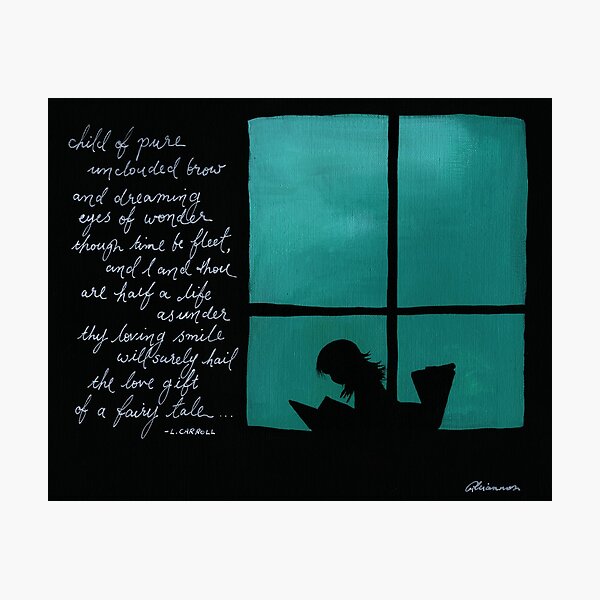 child of pure
unclouded brow
and dreaming
eyes of wonder
though time be fleet,
and I and thou
are half a life
asunder
thy loving smile
will surely hail
the love gift
of a fairy tale...
-L. CARROLL
Rhiannon